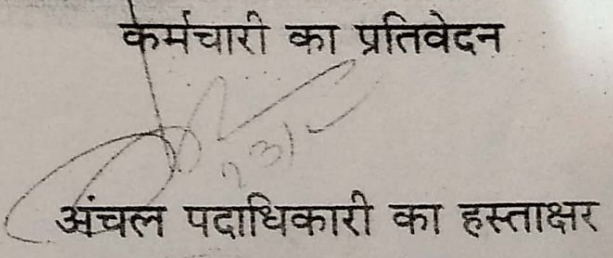 कर्मचारी का प्रतिवेदन
अंचल पदाधिकारी का हस्ताक्षर